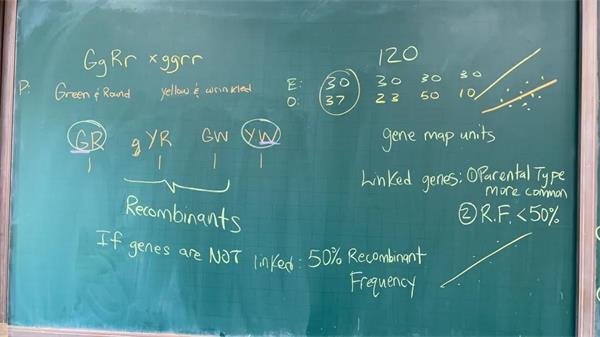 GgRr × ggrr
120
P: Green & Round yellow & wrinkled
E: 30 30 30 30
O: 37 23 50 10
GR gYR GW YW
1 1 1 1
gene map units
Recombinants
Linked genes: ① Parental Type
more common
② R.F. < 50%
If genes are NOT linked: 50% Recombinant
Frequency